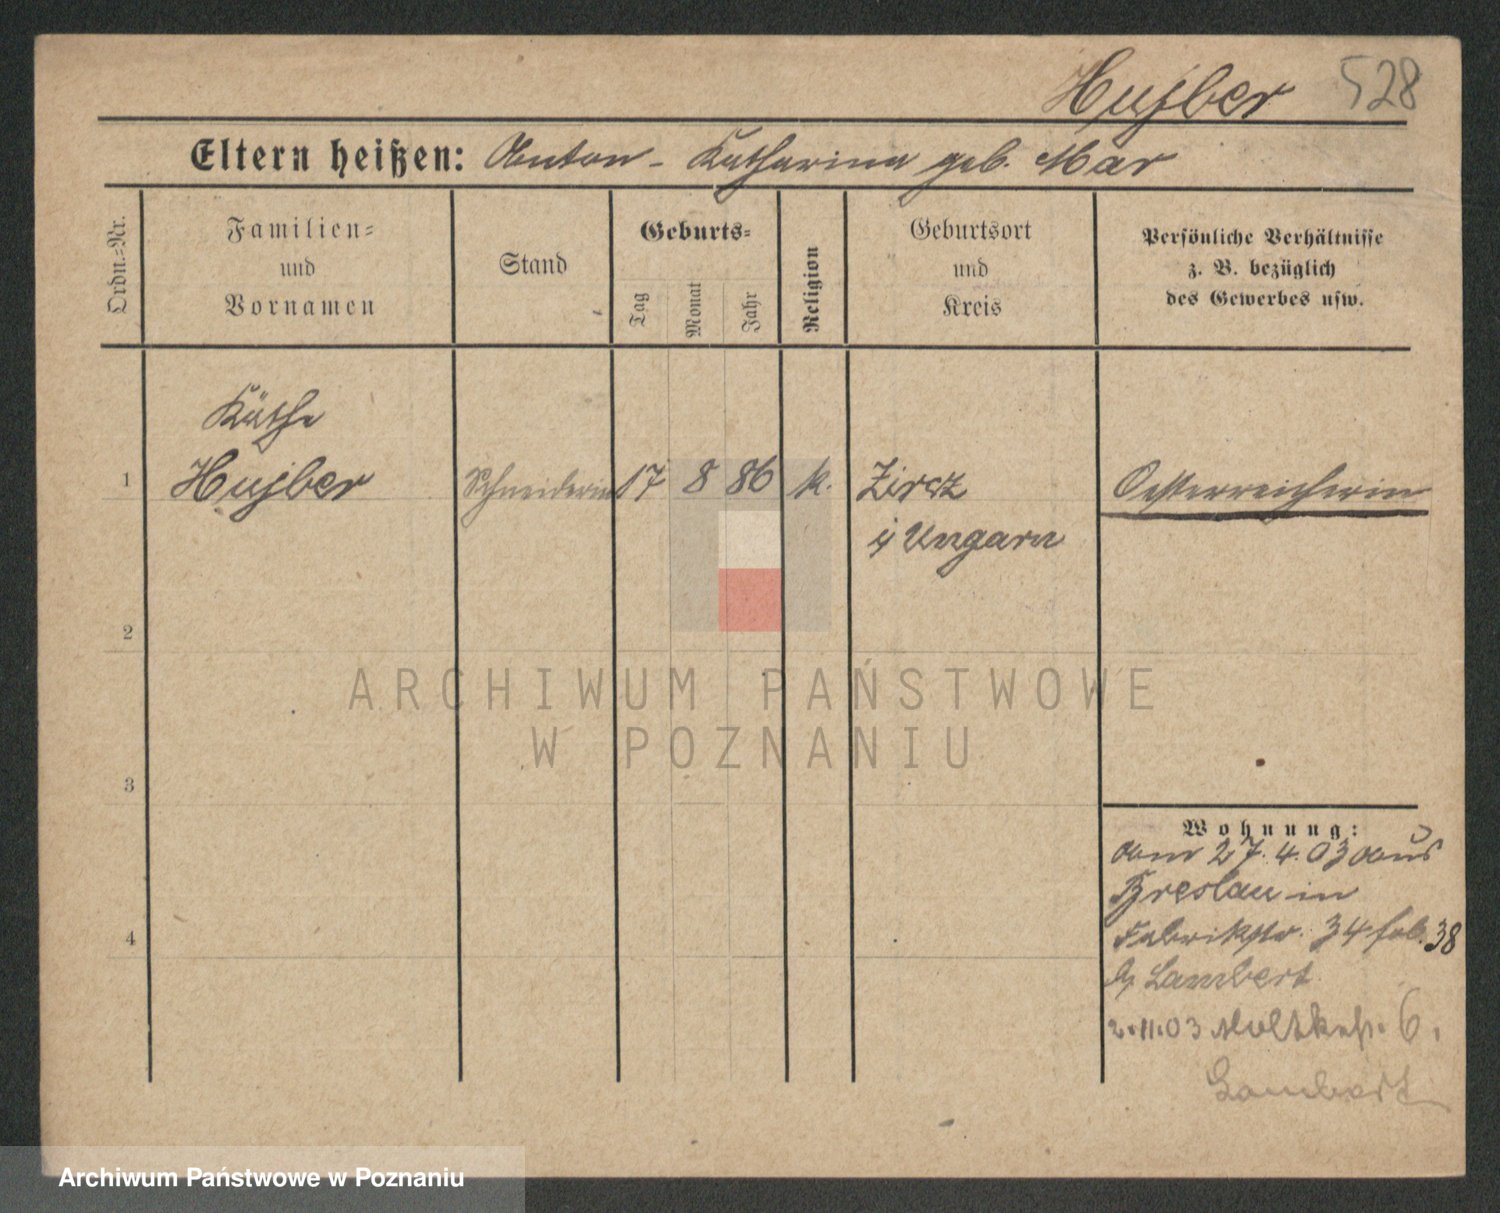 Hujber 528
Eltern heißen: Anton - Katharina geb. Mar
Ordn.-Nr.
Familien-
und
Vornamen
Stand
Geburts-
Tag
Monat
Jahr
Religion
Geburtsort
und
Kreis
Persönliche Verhältnisse
z. B. bezüglich
des Gewerbes usw.
Käthe
1 Hujber Schneiderin 17 8 86 k. Zircz Oesterreicherin
i/ Ungarn
2
ARCHIWUM PAŃSTWOWE
W POZNANIU
3
Wohnung:
am 27. 4. 03 aus
Breslau in
4 Fabrikstr. 34 38
b/ Lambert
2.11.03 Moltkestr. 6.
Lambert
Archiwum Państwowe w Poznaniu